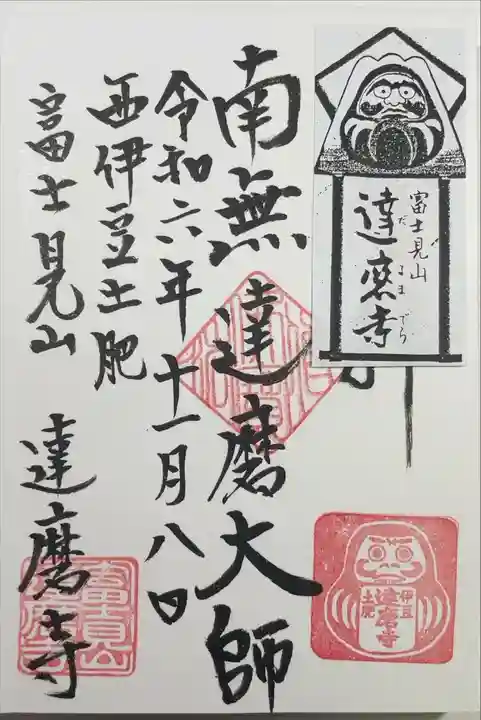 富士見山
達磨寺
だるまでら
伊豆
達磨寺
土肥
南無達磨大師
令和六年十一月八日
西伊豆土肥
富士見山
達磨寺